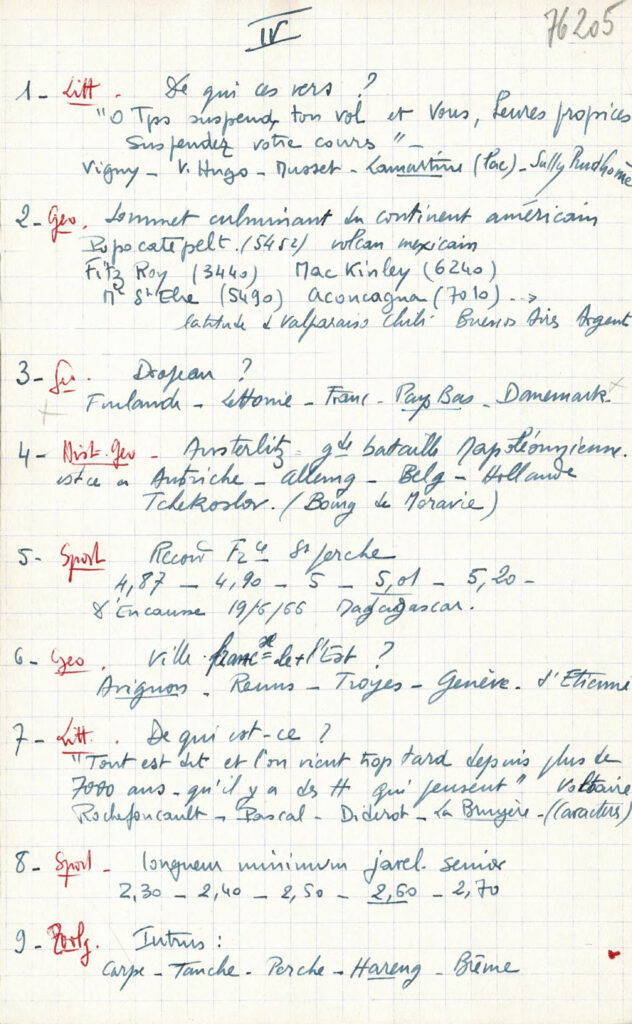 IV
76205
1 - Litt. De qui ces vers ?
"O Tps suspends ton vol et Vous, heures propices
Suspendez votre cours" -
Vigny - V. Hugo - Musset - Lamartine (Lac) - Sully Prudhomme
2 - Geo. Sommet culminant du continent américain
Popocatepelt. (5452) volcan mexicain
Fitz Roy (3440) Mac Kinley (6240)
Mt St Elie (5490) Aconcagua (7010) -->
latitude d Valparaiso Chili Buenos Aires Argent
3 - Geo. Drapeau ?
Finlande - Lettonie - Franc - Pays Bas - Danemark
4 - Hist. Geo - Austerlitz = gde bataille Napoléonienne.
est ce en Autriche - Allemg - Belg - Hollande
Tchekoslov. (Bourg de Moravie)
5 - Sport Record Fr St perche
4,87 - 4,90 - 5 - 5,01 - 5,20 -
D'Encausse 19/6/66 Madagascar.
6 - Geo. Ville le + l'Est ?
Avignon - Reims - Troyes - Genève - St Etienne
7 - Litt. De qui est-ce ?
"Tout est dit et l'on vient trop tard depuis plus de
7000 ans - qu'il y a des H qui pensent" Voltaire
Rochefoucault - Pascal - Diderot - La Bruyère - (Caracters)
8 - Sport - longueur minimum javel. senior
2,30 - 2,40 - 2,50 - 2,60 - 2,70
9 - Zoolg. Intrus :
Carpe - Tanche - Perche - Hareng - Brême